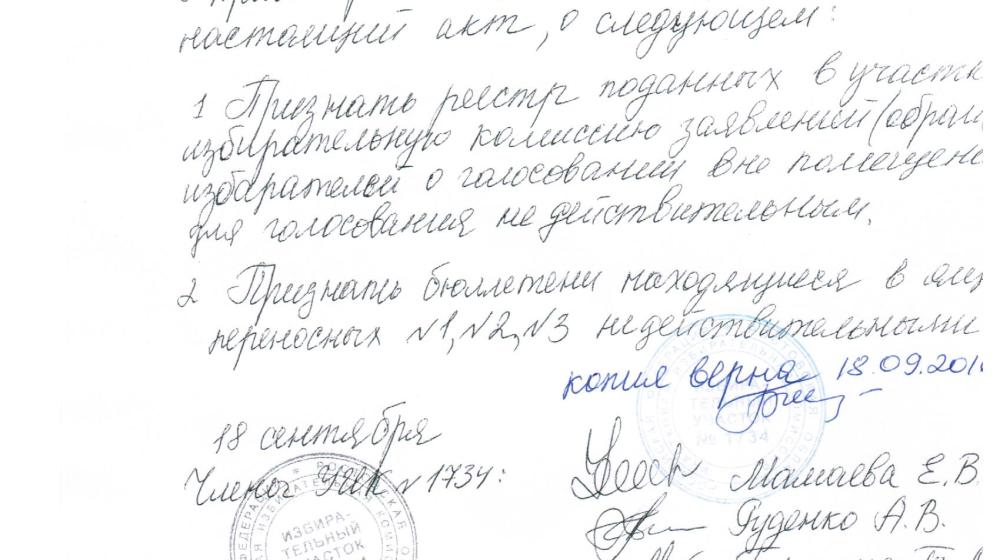 настоящий акт, о следующем:
1 Признать реестр поданных в участк
избирательную комиссию заявлений (обращ
избирателей о голосовании вне помещени
для голосования не действительным.
2 Признать бюллетени находящиеся в ящ
переносных №1, №2, №3 недействительными
копия верна 18.09.201
18 сентября
Члены УИК №1734:
Мамаева Е.В.
Руденко А.В.
ИЗБИРА-
ТЕЛЬНЫЙ
УЧАСТОК
№ 1734